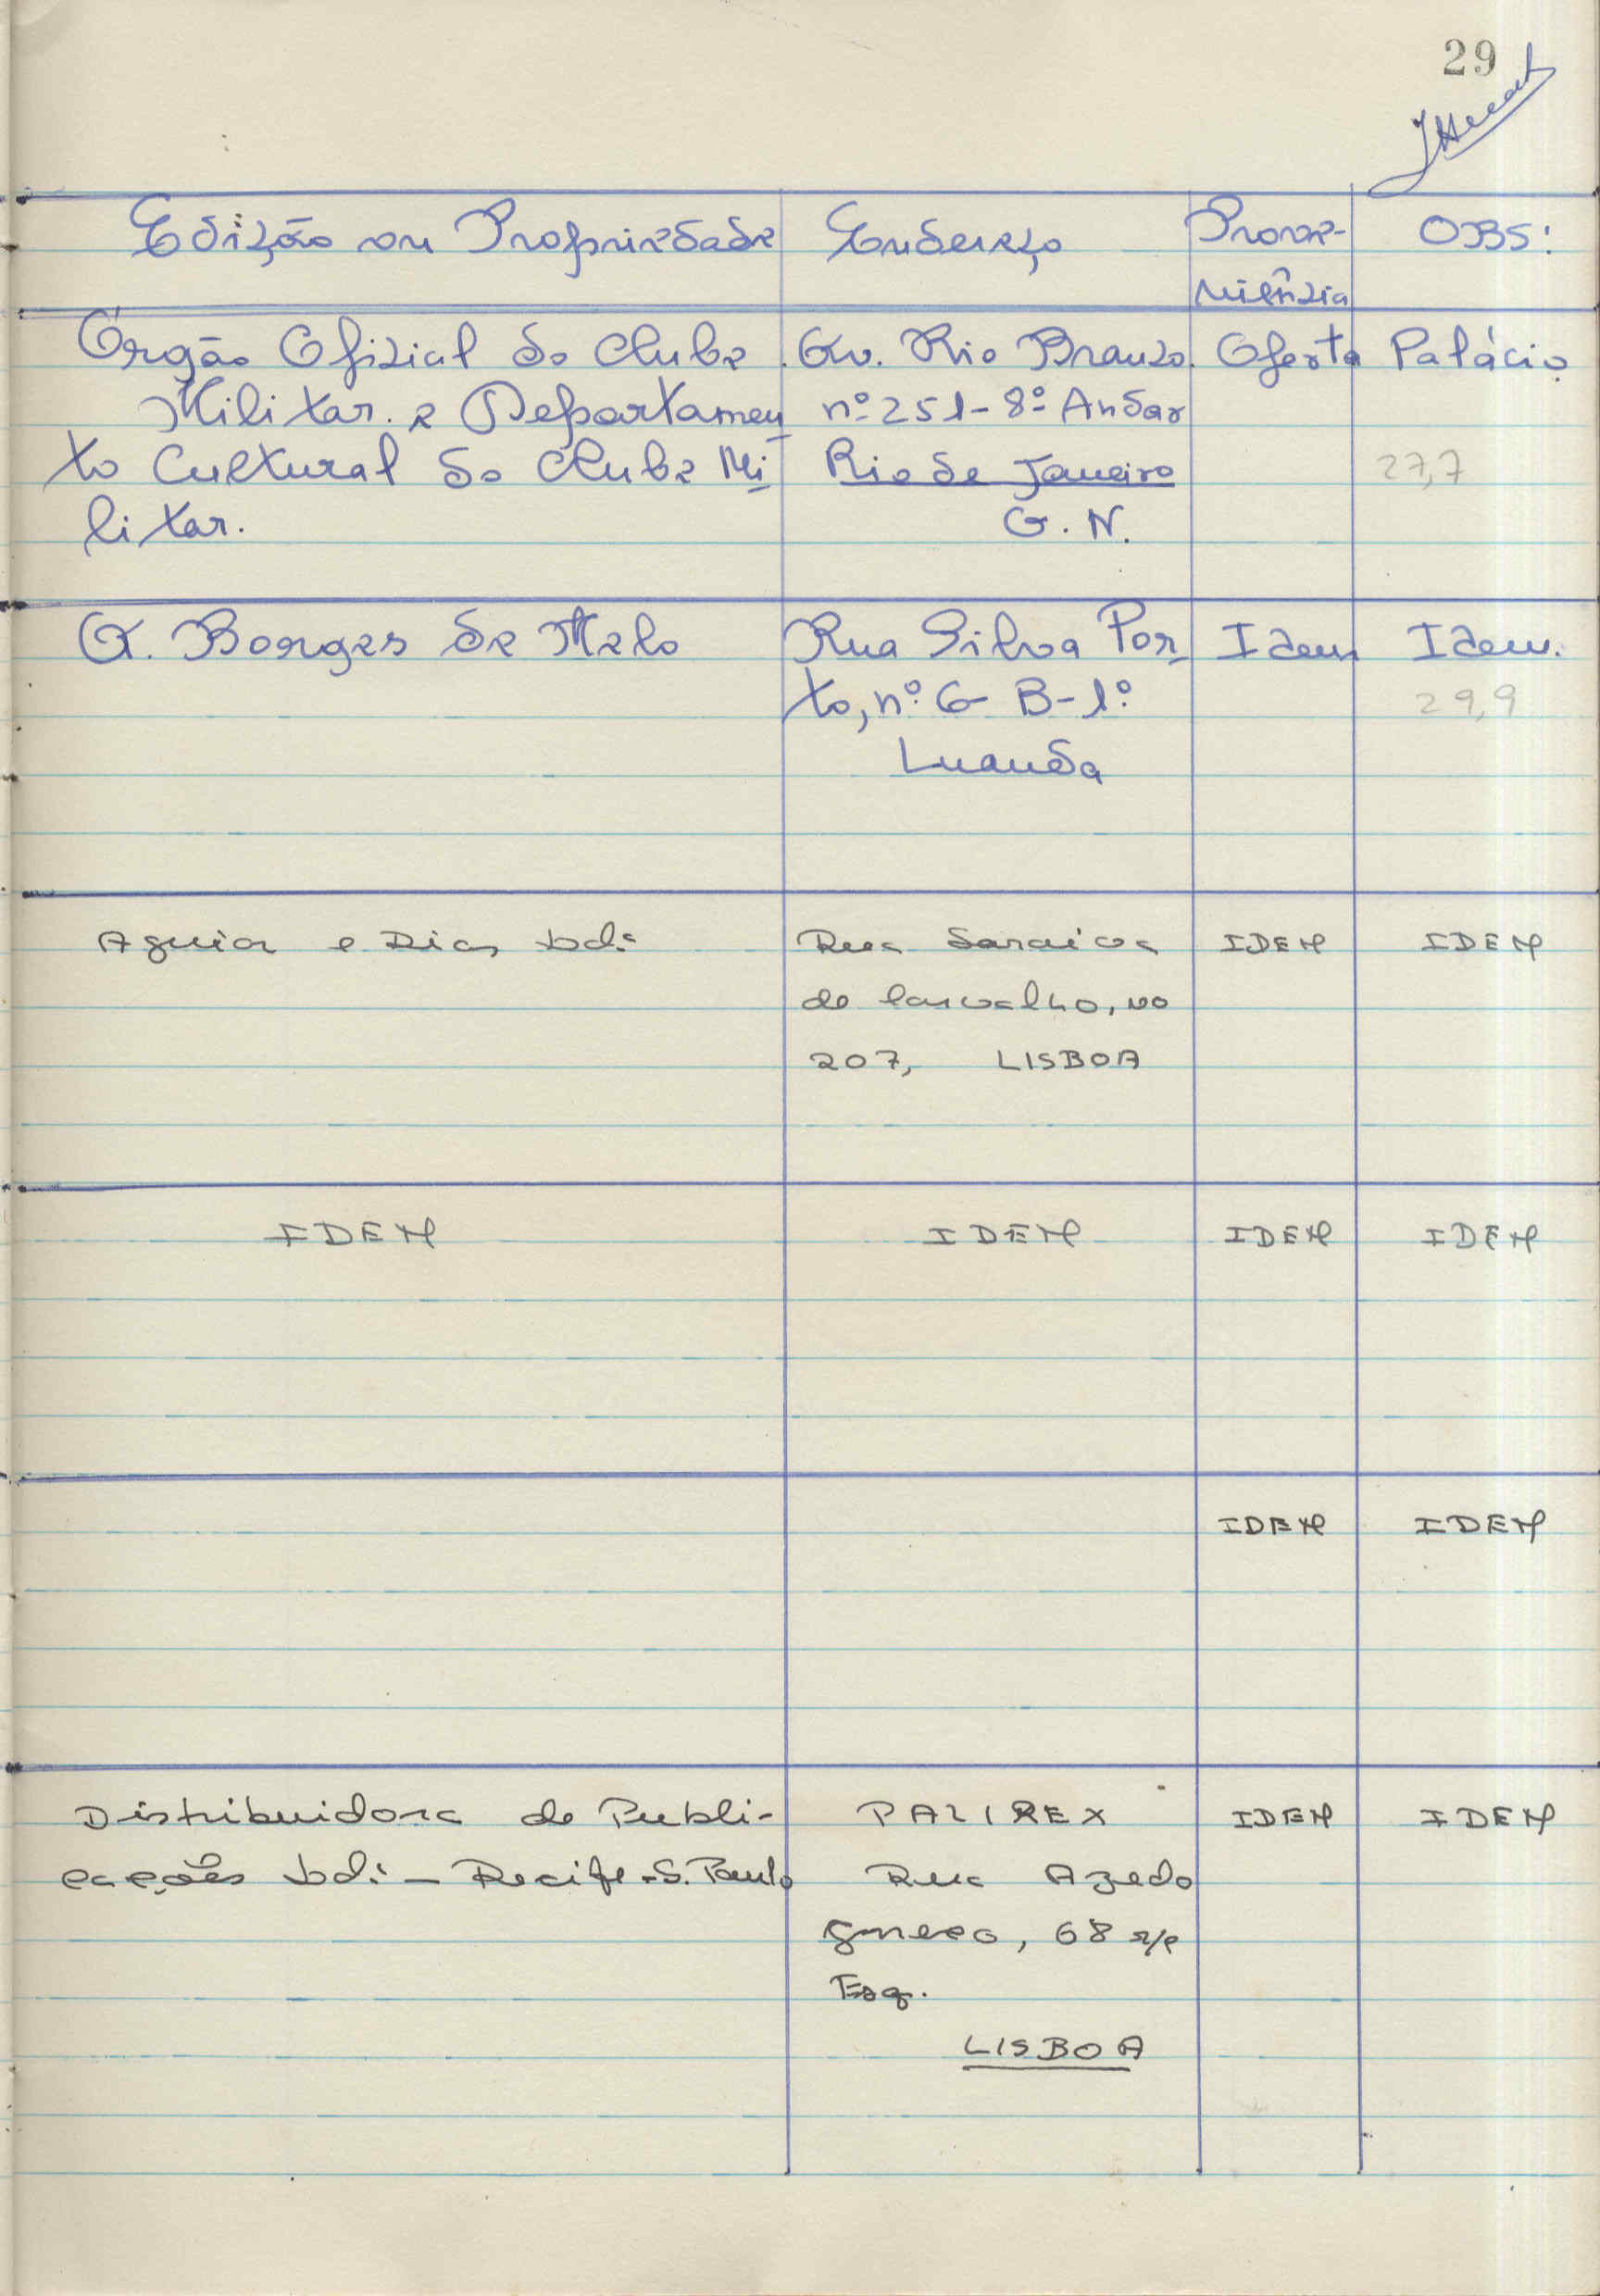 29
Edição ou Propriedade Endereço Prove- OBS:
niência
Órgão Oficial do Clube Av. Rio Branco. Oferta Palácio
Militar. e Departamen nº 251 - 8º Andar
to Cultural do Clube Mi Rio de Janeiro 27,7
litar. G. N.
A. Borges de Melo Rua Silva Por Idem Idem.
to, nº 6 B - 1º 29,9
Luanda
Aguiar e Dias Ldª Rua Saraiva IDEM IDEM
de Carvalho, no
207, LISBOA
IDEM IDEM IDEM IDEM
IDEM IDEM
Distribuidora de Publi- PALIREX IDEM IDEM
cações Ldª - Recife - S. Paulo Rua Azedo
gneco, 68 r/c
Esq.
LISBOA